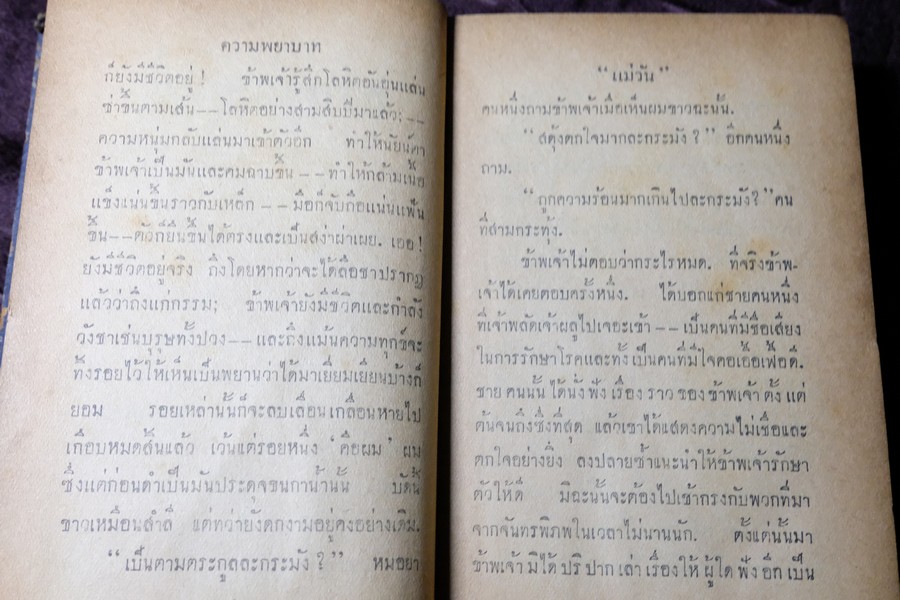 ความพยาบาท
ก็ยังมีชีวิตอยู่! ข้าพเจ้ารู้สึกโลหิตอันอุ่นแล่น
ซ่าขึ้นตามเส้น--โลหิตอย่างสามสิบปีมาแล้ว;--
ความหนุ่มกลับแล่นมาเข้าตัวอีก ทำให้นัยน์ตา
ข้าพเจ้าเป็นมันและคมฉาบขึ้น--ทำให้กล้ามเนื้อ
แข็งแน่นขึ้นราวกับเหล็ก--มือก็จับก็อแน่นแฟ้น
ขึ้น--ตัวก็ยืนขึ้นได้ตรงและเป็นสง่าผ่าเผย. เออ!
ยังมีชีวิตอยู่จริง ถึงโดยหากว่าจะได้ลือชาปรากฏ
แล้วว่าถึงแก่กรรม; ข้าพเจ้ายังมีชีวิตและกำลัง
วังชาเช่นบุรุษทั้งปวง--และถึงแม้นความทุกข์จะ
ทิ้งรอยไว้ให้เห็นเป็นพยานว่าได้มาเยี่ยมเยียนบ้างก็
ยอม รอยเหล่านั้นก็จะลบเลือนเกลื่อนหายไป
เกือบหมดสิ้นแล้ว เว้นแต่รอยหนึ่ง 'คือผม' ผม
ซึ่งแต่ก่อนดำเป็นมันประดุจขนกาน้ำนั้น บัดนี้
ขาวเหมือนสำลี แต่ทว่ายังดกงามอยู่คงอย่างเดิม.
"เป็นตามตระกูลละกระมัง?" หมอยา
"แม่วัน"
คนหนึ่งถามข้าพเจ้าเมื่อเห็นผมขาวฉะนั้น.
"สดุ้งตกใจมากละกระมัง?" อีกคนหนึ่ง
ถาม.
"ถูกความร้อนมากเกินไปละกระมัง?" คน
ที่สามกระทุ้ง.
ข้าพเจ้าไม่ตอบว่ากระไรหมด. ที่จริงข้าพ-
เจ้าได้เคยตอบครั้งหนึ่ง. ได้บอกแก่ชายคนหนึ่ง
ที่เจ้าพลัดเจ้าผลูไปเจอะเข้า--เป็นคนที่มีชื่อเสียง
ในการรักษาโรคและทั้งเป็นคนที่มีใจคอเอื้อเฟื้อดี.
ชายคนนั้นได้นั่งฟังเรื่องราวของข้าพเจ้าตั้งแต่
ต้นจนถึงซึ่งที่สุด แล้วเขาได้แสดงความไม่เชื่อและ
ตกใจอย่างยิ่ง ลงปลายซ้ำแนะนำให้ข้าพเจ้ารักษา
ตัวให้ดี มิฉะนั้นจะต้องไปเข้ากรงกับพวกที่มา
จากจันทรพิภพในเวลาไม่นานนัก. ตั้งแต่นั้นมา
ข้าพเจ้ามิได้ปริปากเล่าเรื่องให้ผู้ใดฟังอีกเป็น